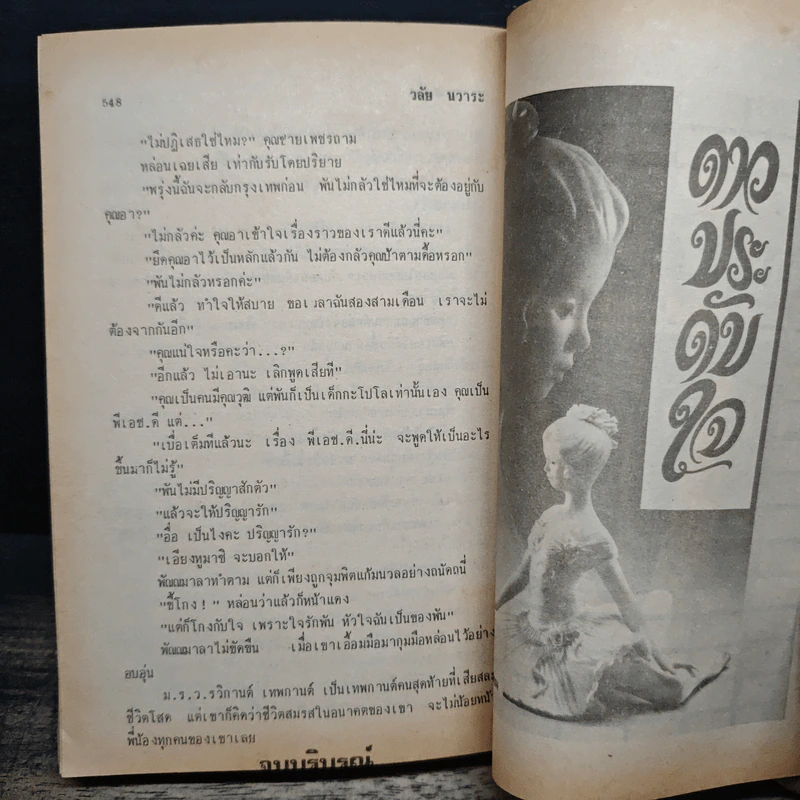 548
วลัย นวาระ
"ไม่ปฏิเสธใช่ไหม?" คุณชายเพชรถาม
หล่อนเฉยเสีย เท่ากับรับโดยปริยาย
"พรุ่งนี้ฉันจะกลับกรุงเทพก่อน พันไม่กลัวใช่ไหมที่จะต้องอยู่กับ
คุณอา?"
"ไม่กลัวค่ะ คุณอาเข้าใจเรื่องราวของเราดีแล้วนี่คะ"
"ยึดคุณอาไว้เป็นหลักแล้วกัน ไม่ต้องกลัวคุณป้าตามตื๊อหรอก"
"พันไม่กลัวหรอกค่ะ"
"ดีแล้ว ทำใจให้สบาย ขอเวลาฉันสองสามเดือน เราจะไม่
ต้องจากกันอีก"
"คุณแน่ใจหรือคะว่า...?"
"อีกแล้ว ไม่เอานะ เลิกพูดเสียที"
"คุณเป็นคนมีคุณวุฒิ แต่พันก็เป็นเด็กกะโปโลเท่านั้นเอง คุณเป็น
พีเอช.ดี แต่..."
"เบื่อเต็มทีแล้วนะ เรื่อง พีเอช.ดี.นี่น่ะ จะพูดให้เป็นอะไร
ขึ้นมาก็ไม่รู้"
"พันไม่มีปริญญาสักตัว"
"แล้วจะให้ปริญญารัก"
"อื่อ เป็นไงคะ ปริญญารัก?"
"เอียงหูมาซิ จะบอกให้"
พัณณมาลาทำตาม แต่ก็เพียงถูกจุมพิตแก้มนวลอย่างถนัดถนี่
"ขี้โกง!" หล่อนว่าแล้วก็หน้าแดง
"แต่ก็โกงกับใจ เพราะใจรักพัน หัวใจฉันเป็นของพัน"
พัณณมาลาไม่ขัดขืน เมื่อเขาเอื้อมมือมากุมมือหล่อนไว้อย่าง
อบอุ่น
ม.ร.ว.รวิกานต์ เทพกานต์ เป็นเทพกานต์คนสุดท้ายที่เสียสละ
ชีวิตโสด แต่เขาก็คิดว่าชีวิตสมรสในอนาคตของเขา จะไม่น้อยหน้า
พี่น้องทุกคนของเขาเลย
จบบริบูรณ์
ดาว
ประ
ดับ
ใจ